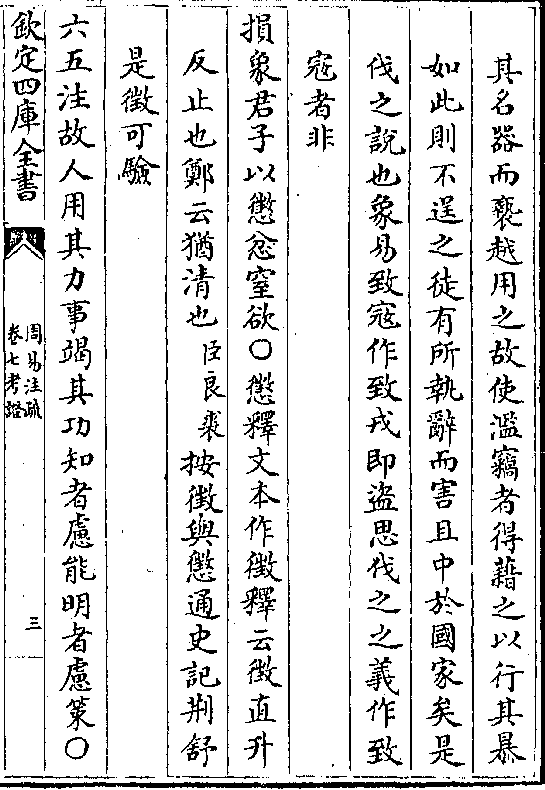 其名器而褻越用之故使濫竊者得藉之以行其暴
如此則不逞之徒有所執辭而害且中於國家矣是
伐之說也象易致寇作致戎即盜思伐之之義作致
寇者非
損象君子以懲忿窒欲○懲釋文本作徵釋云徵直升
反止也鄭云猶清也臣良裘按徵與懲通史記荆舒
是徵可驗
六五注故人用其力事竭其功知者慮能明者慮策○
欽定四庫全書
周易注疏
卷七考證
三